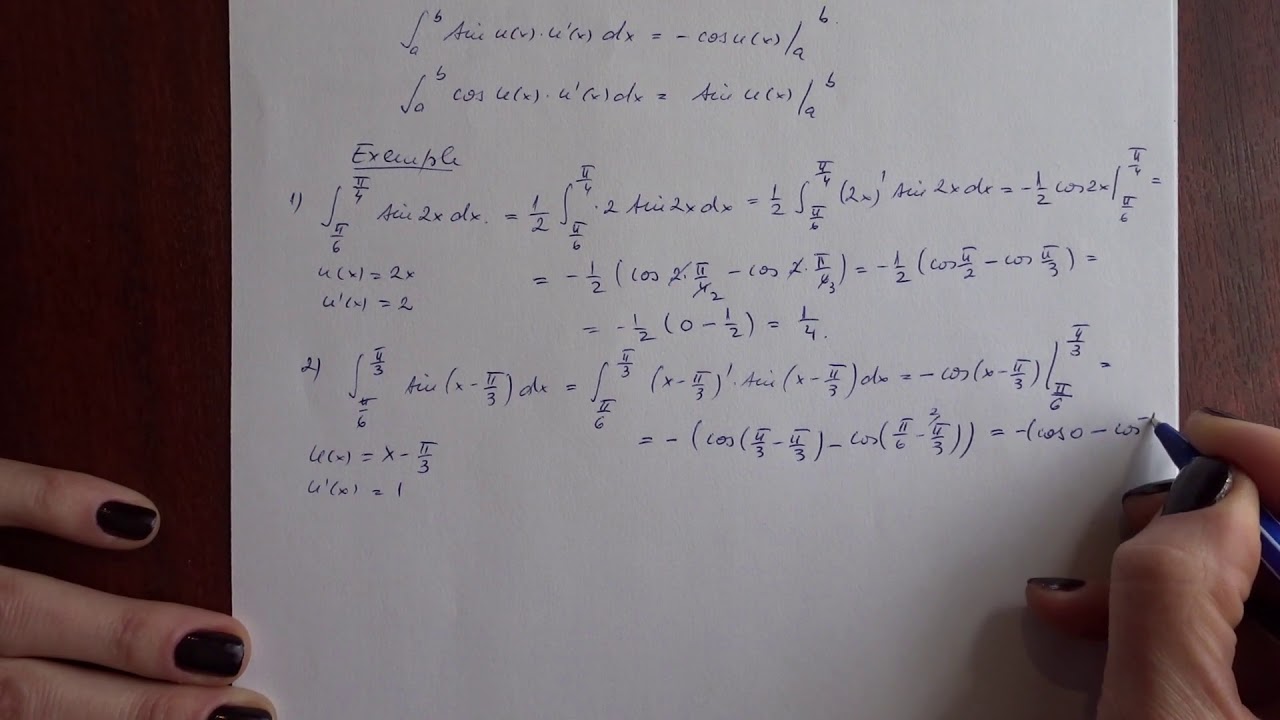 ∫_a^b sin u(x)·u'(x) dx = - cos u(x) |_a^b.
∫_a^b cos u(x)·u'(x) dx = sin u(x) |_a^b
Exemple
1) ∫_{π/6}^{π/4} sin 2x dx. = 1/2 ∫_{π/6}^{π/4} ·2 sin 2x dx = 1/2 ∫_{π/6}^{π/4} (2x)' sin 2x dx = -1/2 cos 2x |_{π/6}^{π/4} =
u(x) = 2x
= -1/2 (cos 2·π/4 2 - cos 2·π/6 3) = -1/2 (cos π/2 - cos π/3) =
u'(x) = 2
= -1/2 (0 - 1/2) = 1/4.
2) ∫_{π/6}^{π/3} sin(x - π/3) dx = ∫_{π/6}^{π/3} (x - π/3)'·sin(x - π/3) dx = - cos(x - π/3) |_{π/6}^{π/3} =
= - (cos(π/3 - π/3) - cos(π/6 - 2/π/3)) = -(cos 0 - cos -
u(x) = x - π/3
u'(x) = 1